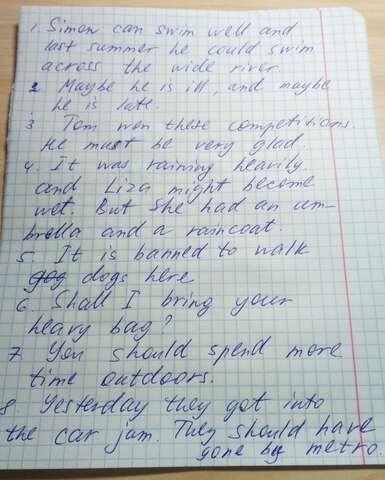 1. Simon can swim well and
last summer he could swim
across the wide river.
2 Maybe he is ill, and maybe
he is late.
3 Tom won these competitions.
He must be very glad.
4. It was raining heavily
and Liza might become
wet. But she had an um-
brella and a raincoat.
5 It is banned to walk
dogs here
6 Shall I bring your
heavy bag?
7 You should spend more
time outdoors.
8. Yesterday they got into
the car jam. They should have
gone by metro.